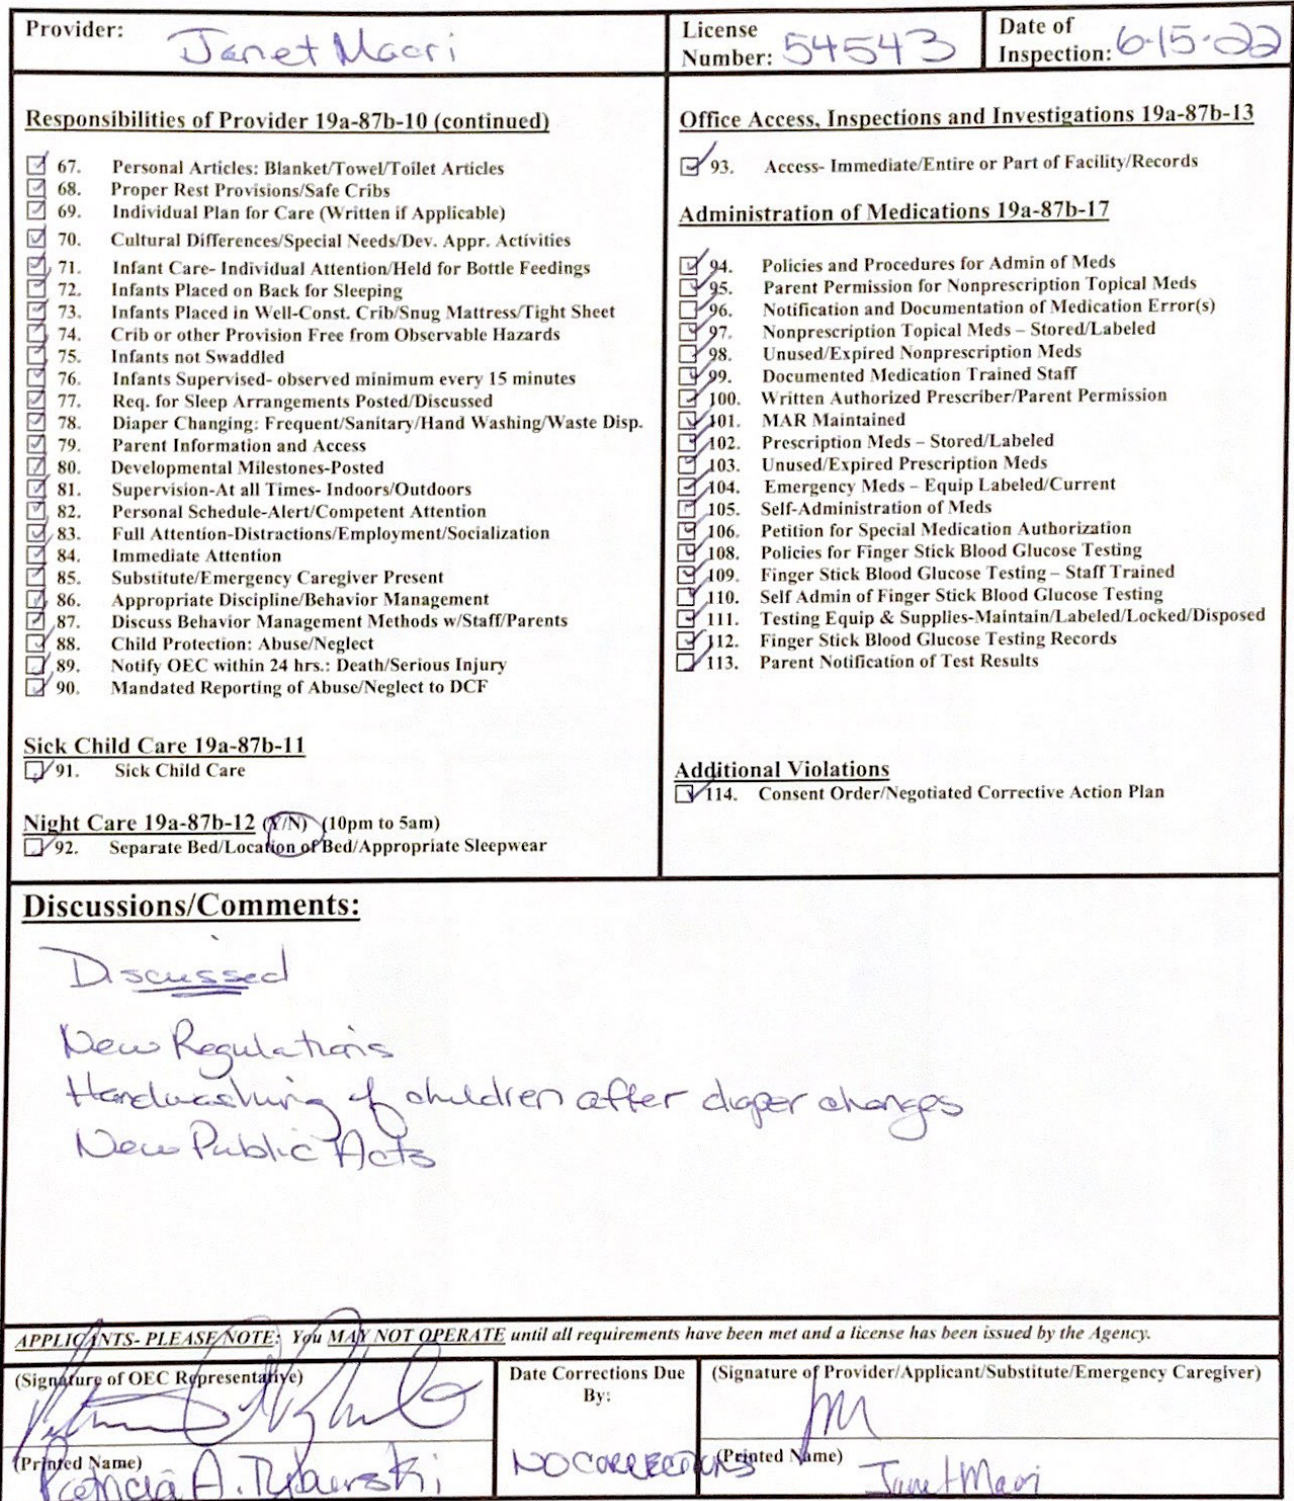 Provider: Janet Maori
License Number: 54543
Date of Inspection: 6-15-22
Responsibilities of Provider 19a-87b-10 (continued)
67. Personal Articles: Blanket/Towel/Toilet Articles
68. Proper Rest Provisions/Safe Cribs
69. Individual Plan for Care (Written if Applicable)
70. Cultural Differences/Special Needs/Dev. Appr. Activities
71. Infant Care- Individual Attention/Held for Bottle Feedings
72. Infants Placed on Back for Sleeping
73. Infants Placed in Well-Const. Crib/Snug Mattress/Tight Sheet
74. Crib or other Provision Free from Observable Hazards
75. Infants not Swaddled
76. Infants Supervised- observed minimum every 15 minutes
77. Req. for Sleep Arrangements Posted/Discussed
78. Diaper Changing: Frequent/Sanitary/Hand Washing/Waste Disp.
79. Parent Information and Access
80. Developmental Milestones-Posted
81. Supervision-At all Times- Indoors/Outdoors
82. Personal Schedule-Alert/Competent Attention
83. Full Attention-Distractions/Employment/Socialization
84. Immediate Attention
85. Substitute/Emergency Caregiver Present
86. Appropriate Discipline/Behavior Management
87. Discuss Behavior Management Methods w/Staff/Parents
88. Child Protection: Abuse/Neglect
89. Notify OEC within 24 hrs.: Death/Serious Injury
90. Mandated Reporting of Abuse/Neglect to DCF
Sick Child Care 19a-87b-11
91. Sick Child Care
Night Care 19a-87b-12 (Y/N) (10pm to 5am)
92. Separate Bed/Location of Bed/Appropriate Sleepwear
Office Access, Inspections and Investigations 19a-87b-13
93. Access- Immediate/Entire or Part of Facility/Records
Administration of Medications 19a-87b-17
94. Policies and Procedures for Admin of Meds
95. Parent Permission for Nonprescription Topical Meds
96. Notification and Documentation of Medication Error(s)
97. Nonprescription Topical Meds – Stored/Labeled
98. Unused/Expired Nonprescription Meds
99. Documented Medication Trained Staff
100. Written Authorized Prescriber/Parent Permission
101. MAR Maintained
102. Prescription Meds – Stored/Labeled
103. Unused/Expired Prescription Meds
104. Emergency Meds – Equip Labeled/Current
105. Self-Administration of Meds
106. Petition for Special Medication Authorization
108. Policies for Finger Stick Blood Glucose Testing
109. Finger Stick Blood Glucose Testing – Staff Trained
110. Self Admin of Finger Stick Blood Glucose Testing
111. Testing Equip & Supplies-Maintain/Labeled/Locked/Disposed
112. Finger Stick Blood Glucose Testing Records
113. Parent Notification of Test Results
Additional Violations
114. Consent Order/Negotiated Corrective Action Plan
Discussions/Comments:
Discussed
New Regulations
Handwashing of children after diaper changes
New Public Acts
APPLICANTS- PLEASE NOTE: You MAY NOT OPERATE until all requirements have been met and a license has been issued by the Agency.
(Signature of OEC Representative)
(Printed Name)
Patricia A.
Date Corrections Due
By:
NO CORRECTIONS
(Signature of Provider/Applicant/Substitute/Emergency Caregiver)
JM
(Printed Name)
Janet Maori